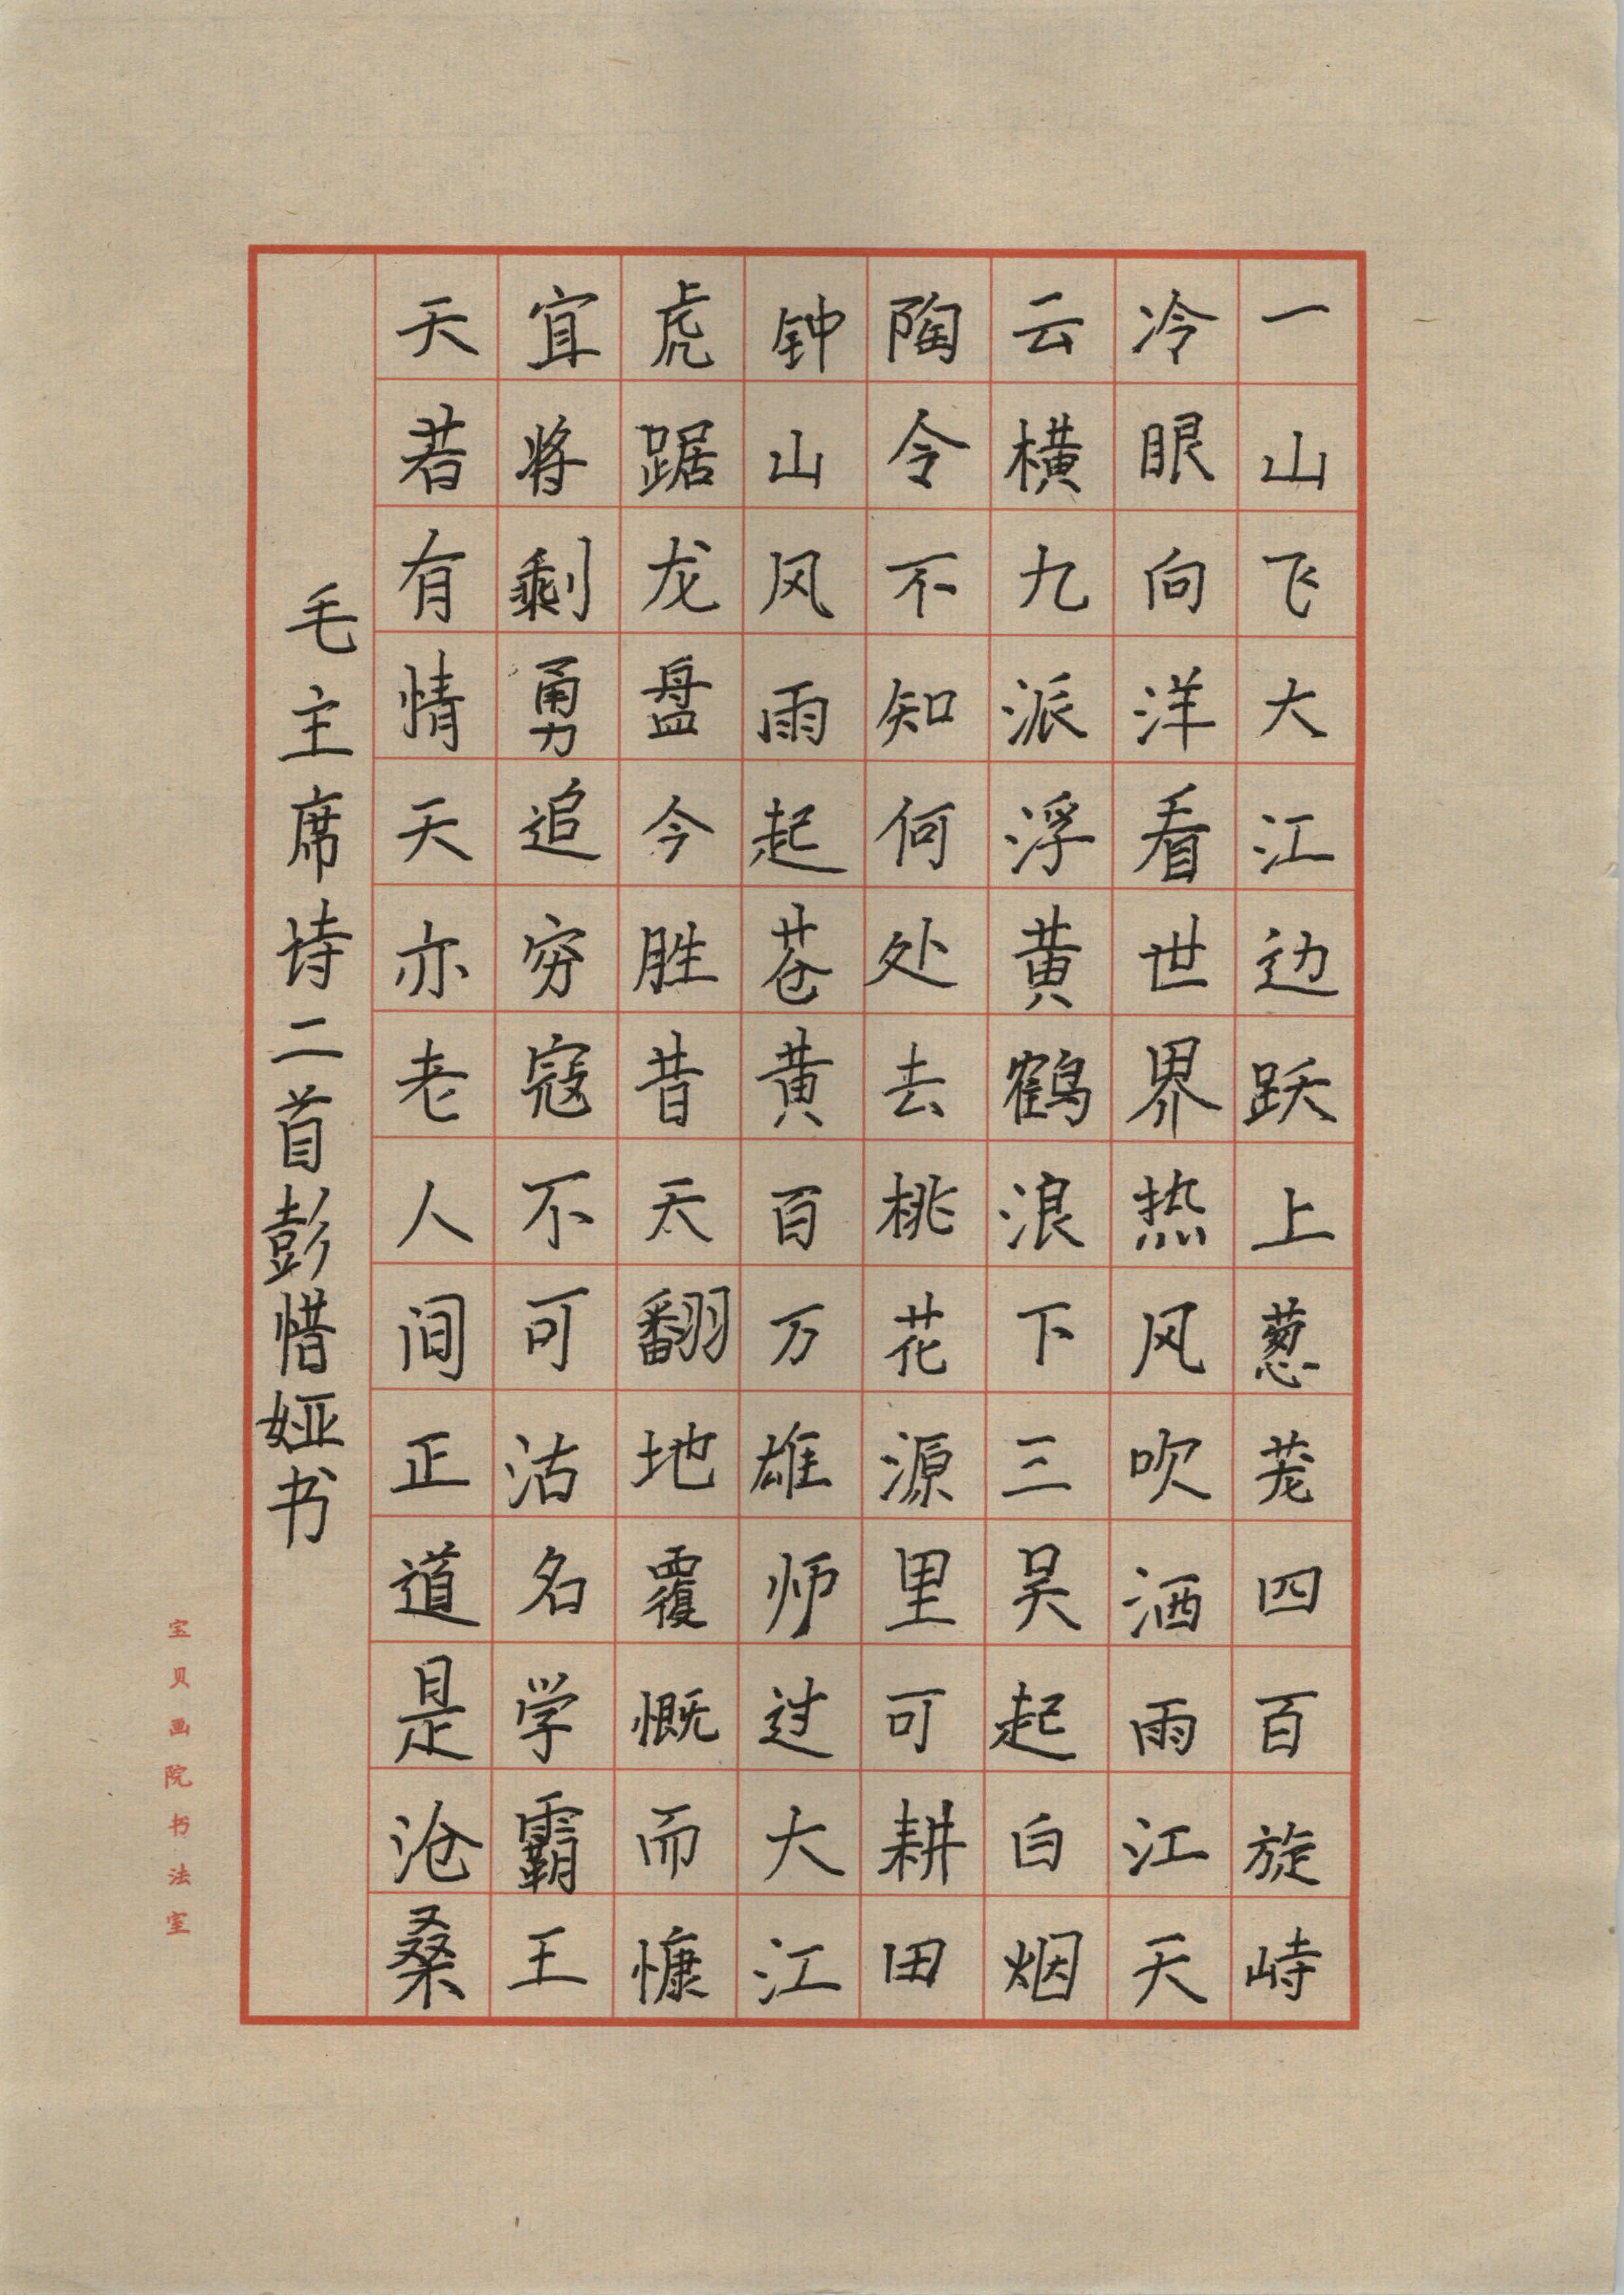 一山飞大江边跃上葱茏四百旋峙
冷眼向洋看世界热风吹洒雨江天
云横九派浮黄鹤浪下三吴起白烟
陶令不知何处去桃花源里可耕田
钟山风雨起苍黄百万雄师过大江
虎踞龙盘今胜昔天翻地覆慨而慷
宜将剩勇追穷寇不可沽名学霸王
天若有情天亦老人间正道是沧桑
毛主席诗二首彭惜娅书
宝贝画院书法室